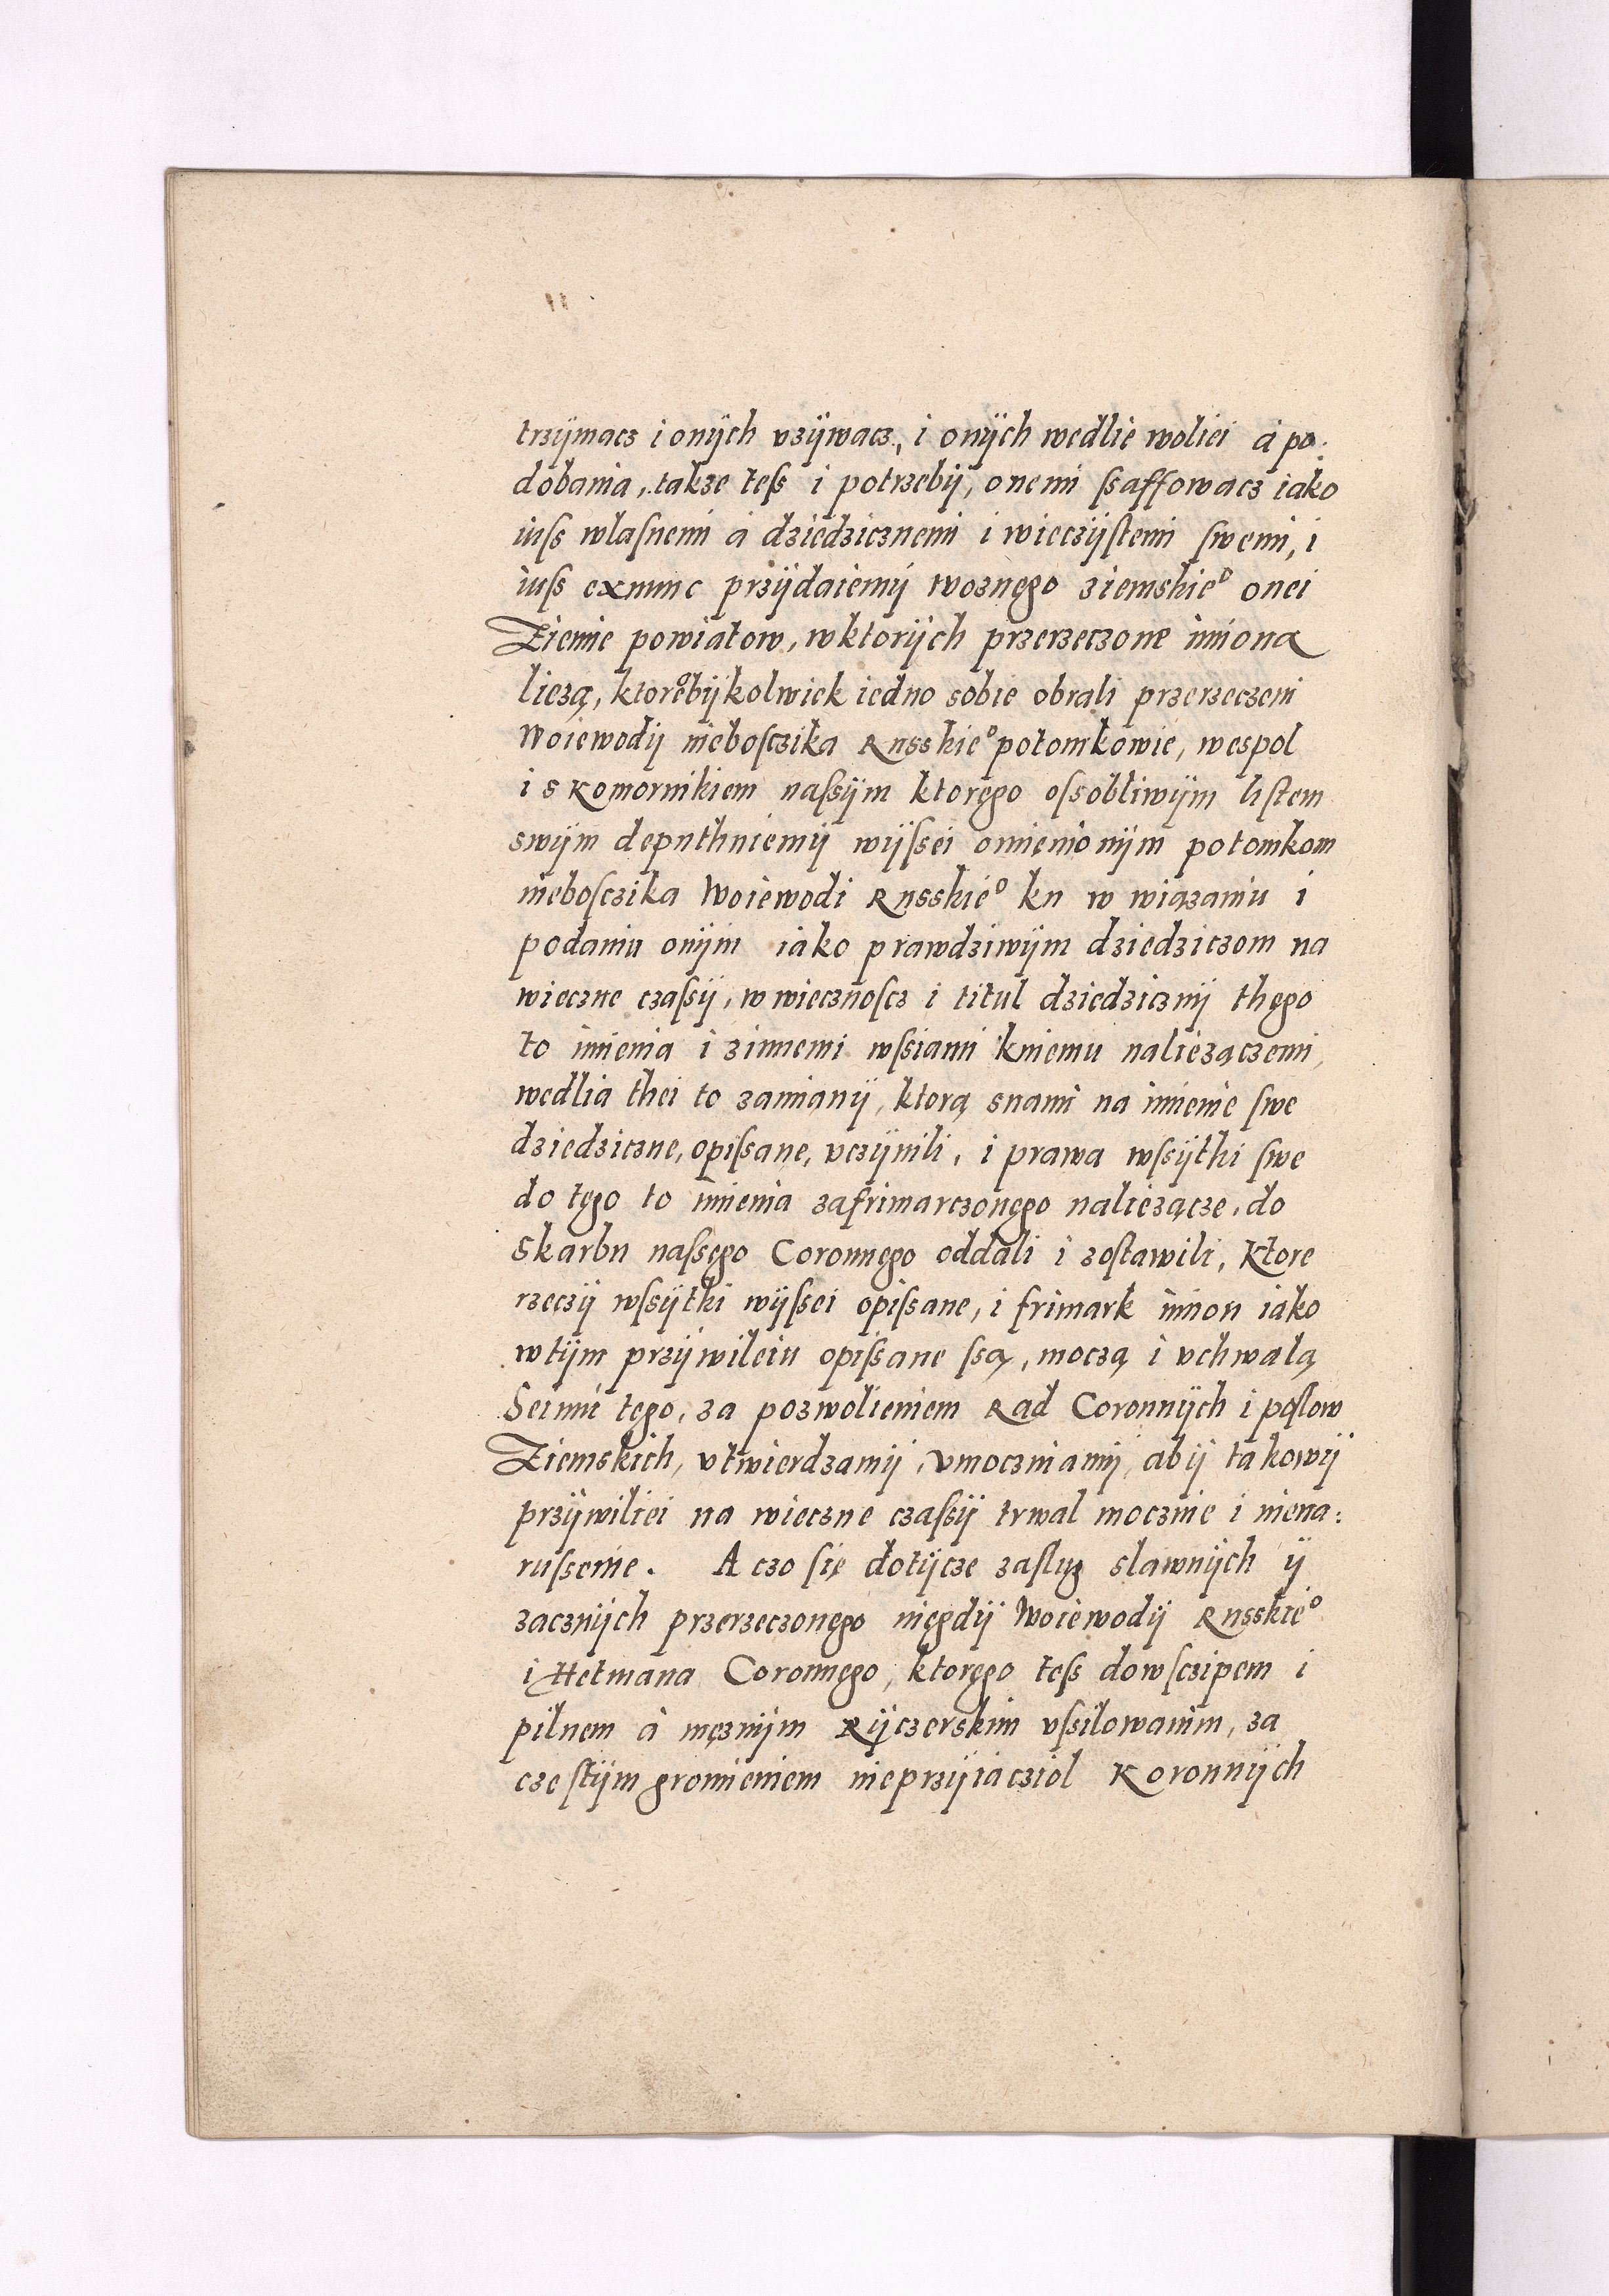 trzÿmacz i onÿch vzÿwacz, i onÿch wedlie woliei á po:
dobania, takze teſs i potrzebÿ, onemi ſsaffowacz iako
iuſs wlaſnemi á dziedzicznemi i wieczÿſtemi ſwemi, i
iuſs exnunc przÿdaiemÿ woznęgo ziemskie° onei
Ziemie powiatow, w ktorÿch przerzeczone imiona
liezą, ktore°bÿkolwiek iedno sobie obrali przerzeczeni
Woiewodÿ nieboſczika Russkie° potomkowie, wespol
i s Komornikiem naſsÿm ktoręgo oſsobliwÿm liſtem
swÿm deputhuiemÿ wÿſsei omienionÿm potomkom
nieboſczika Woiewodi Russkie° ku w wiązaniu i
podaniu onÿm iako prawdziwÿm dziedziczom na
wieczne czaſsÿ, w wiecznoſcz i titul dziedzicznÿ thęgo
to imienia i zinnemi wſsiami kniemu naliezączemi,
wedlia thei to zamianÿ, ktorą snami na imienie ſwe
dziedziczne, opiſsane, vczÿnili, i prawa wſsÿtki ſwe
do tęgo to imienia zafrimarczonęgo naliezącze, do
Skarbu naſsęgo Coronnęgo oddali i zoſtawili, Ktore
rzeczÿ wſsÿtki wÿſsei opiſsane, i frimark imion iako
wtÿm przÿwileiu opiſsane ſsą, moczą i vchwalą
Seimu tęgo, za pozwolieniem Rad Coronnÿch i poſlow
Ziemskich, vtwierdzamÿ, vmoczniamÿ, abÿ takowÿ
przÿwiliei na wieczne czaſsÿ trwal mocznie i niena:
ruſsenie. A czo ſię dotÿcze zaſlug slawnÿch ÿ
zacznÿch przerzeczonęgo nięgdÿ Woiewodÿ Russkie°
i Hetmana Coronnęgo, ktoręgo teſs dowſczipem i
pilnem á męznÿm Rÿczerskim vſsilowanim, za
czeſtÿm gromieniem nieprzÿiacziol Koronnÿch